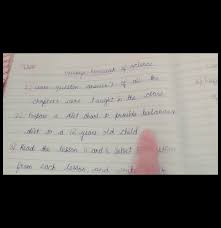 Homework of science
1) Learn question answer's of all the
chapters were taught in the class
2) Prepare a diet chart to provide balanced
diet to a 12 years old child
3) Read the lesson and select
from each lesson and